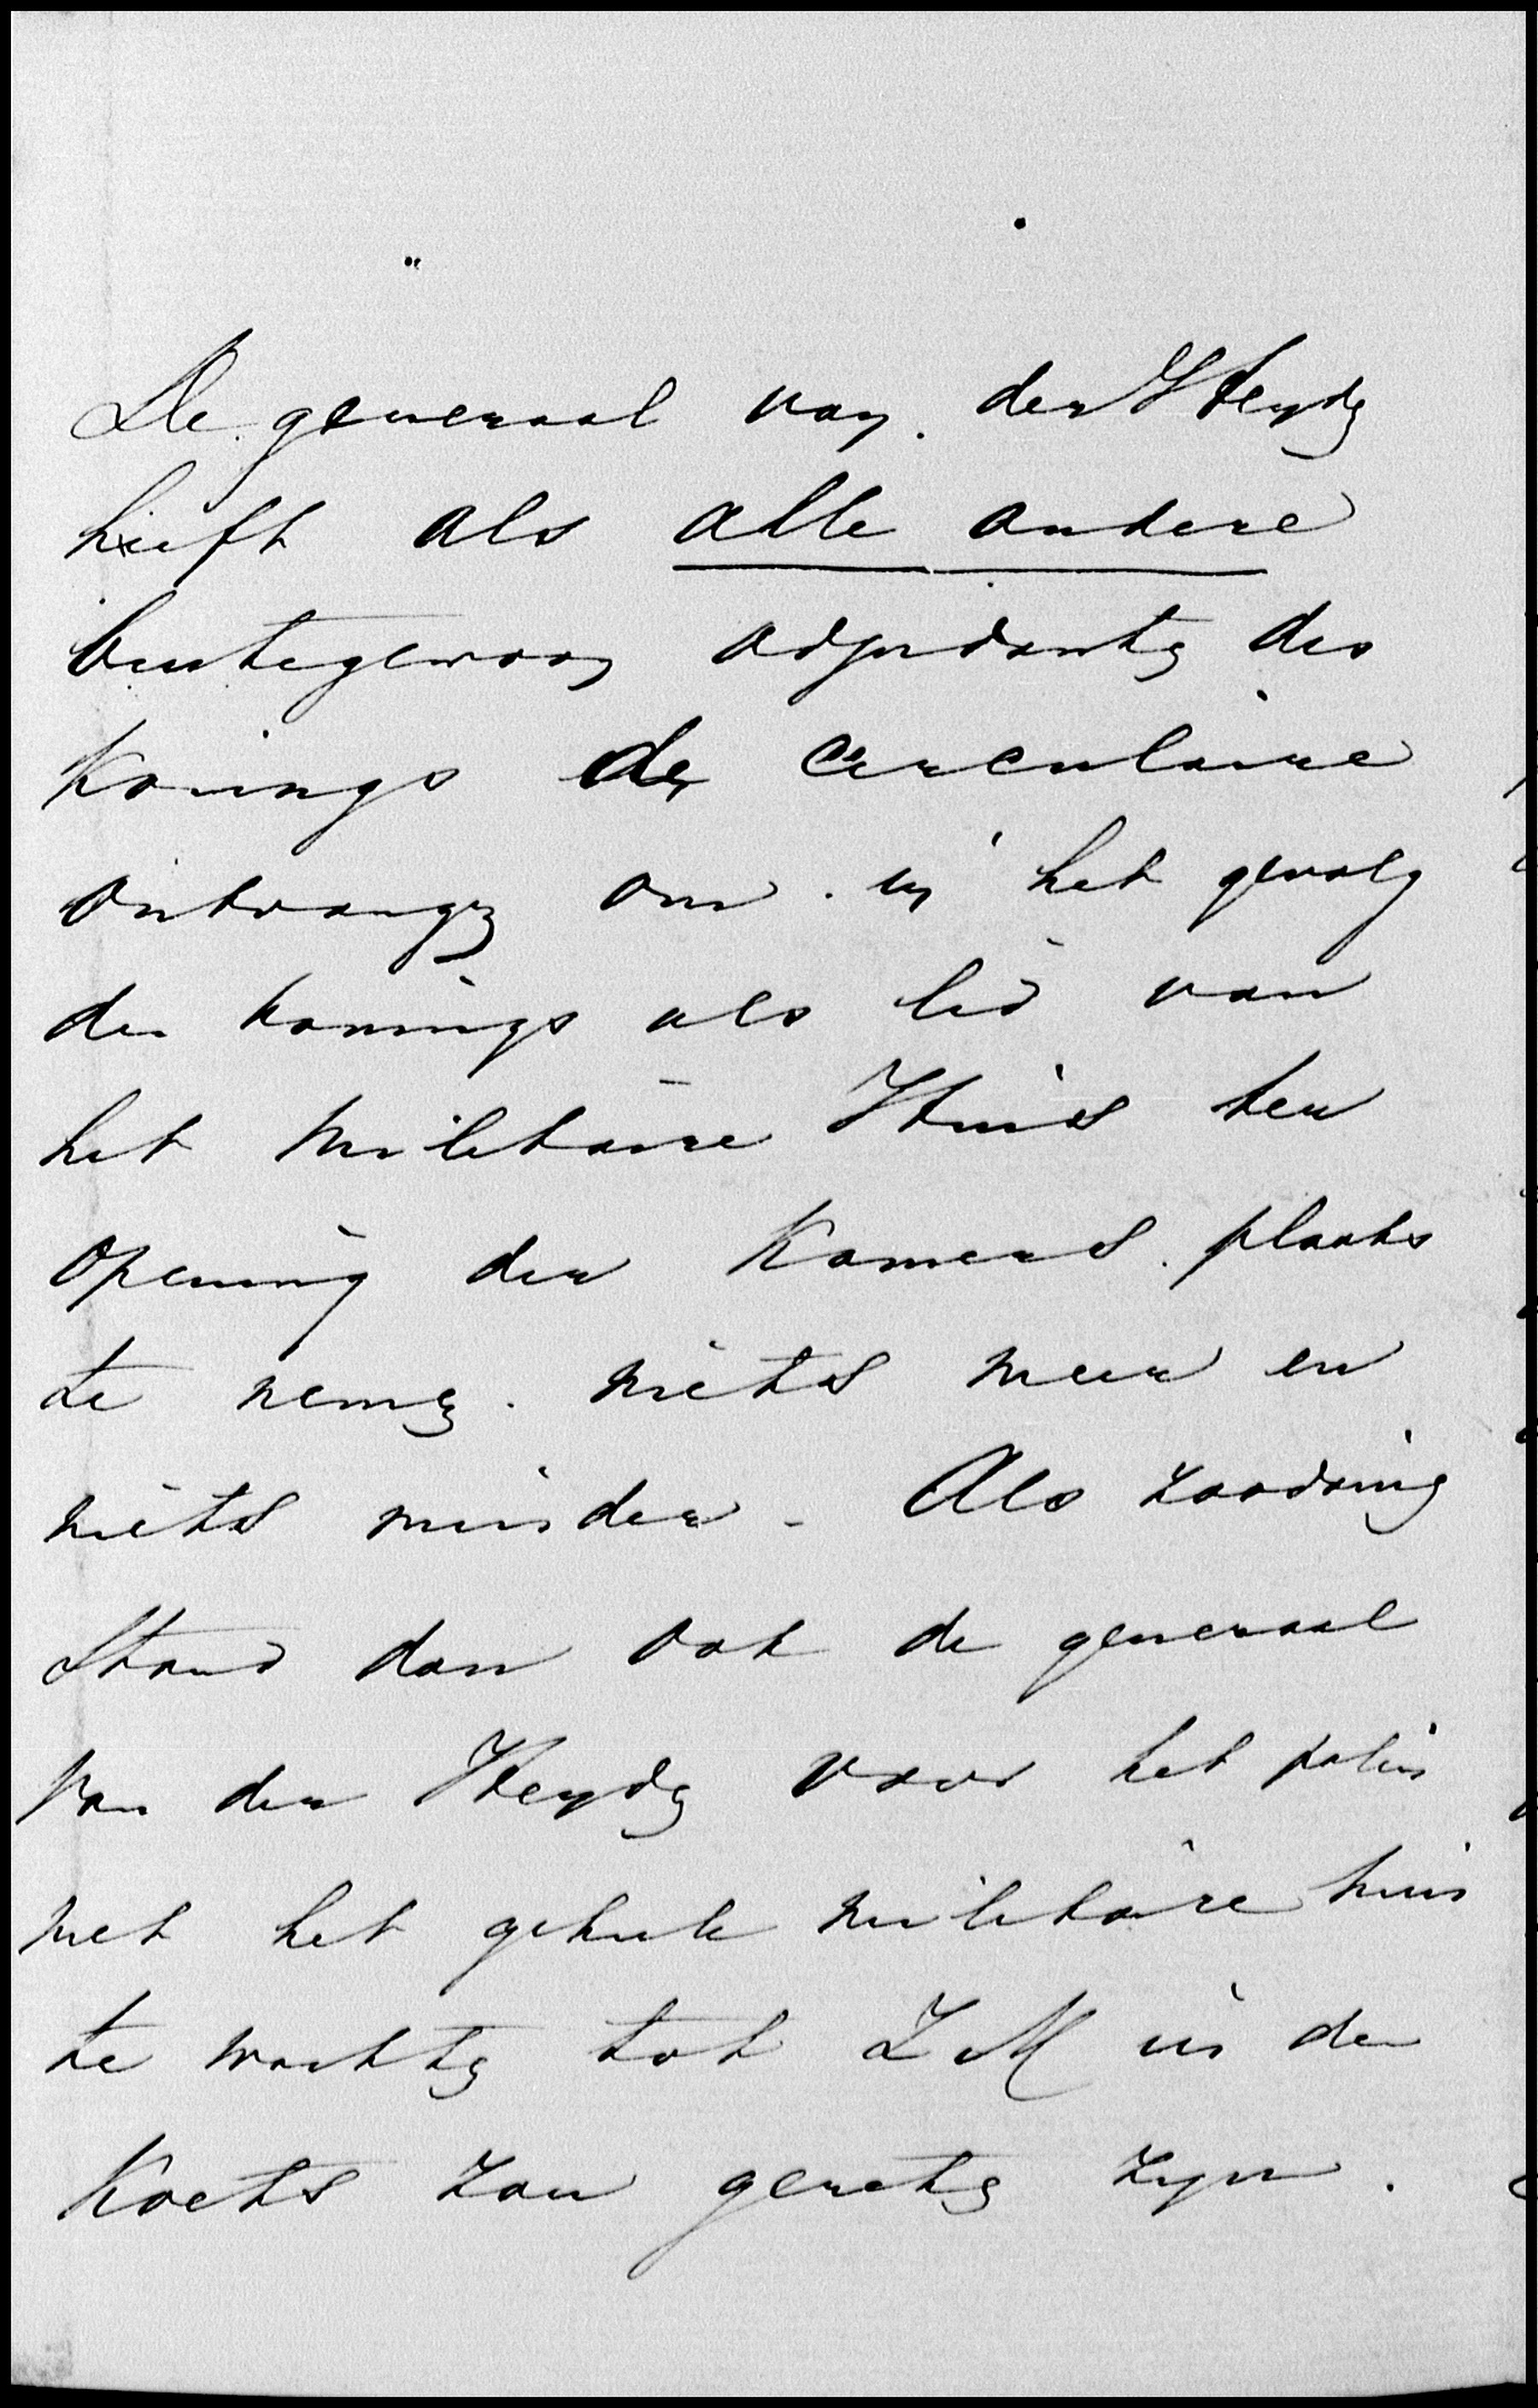 De generaal van der Heyden
heeft als alle andere
buitegewoon adjudanten des
Konings de circulaire
ontvangen om in het gevolg
des konings als lid van
het Militaire Huis ter
opening der Kamers plaats
te nemen. niets meer en
niets minder - Als zoodanig
stond dan ook de generaal
Van der Heyden voor het paleis
met het geheele militaire huis
te wachten tot Z M in de
Koets zou gezeten zyn.